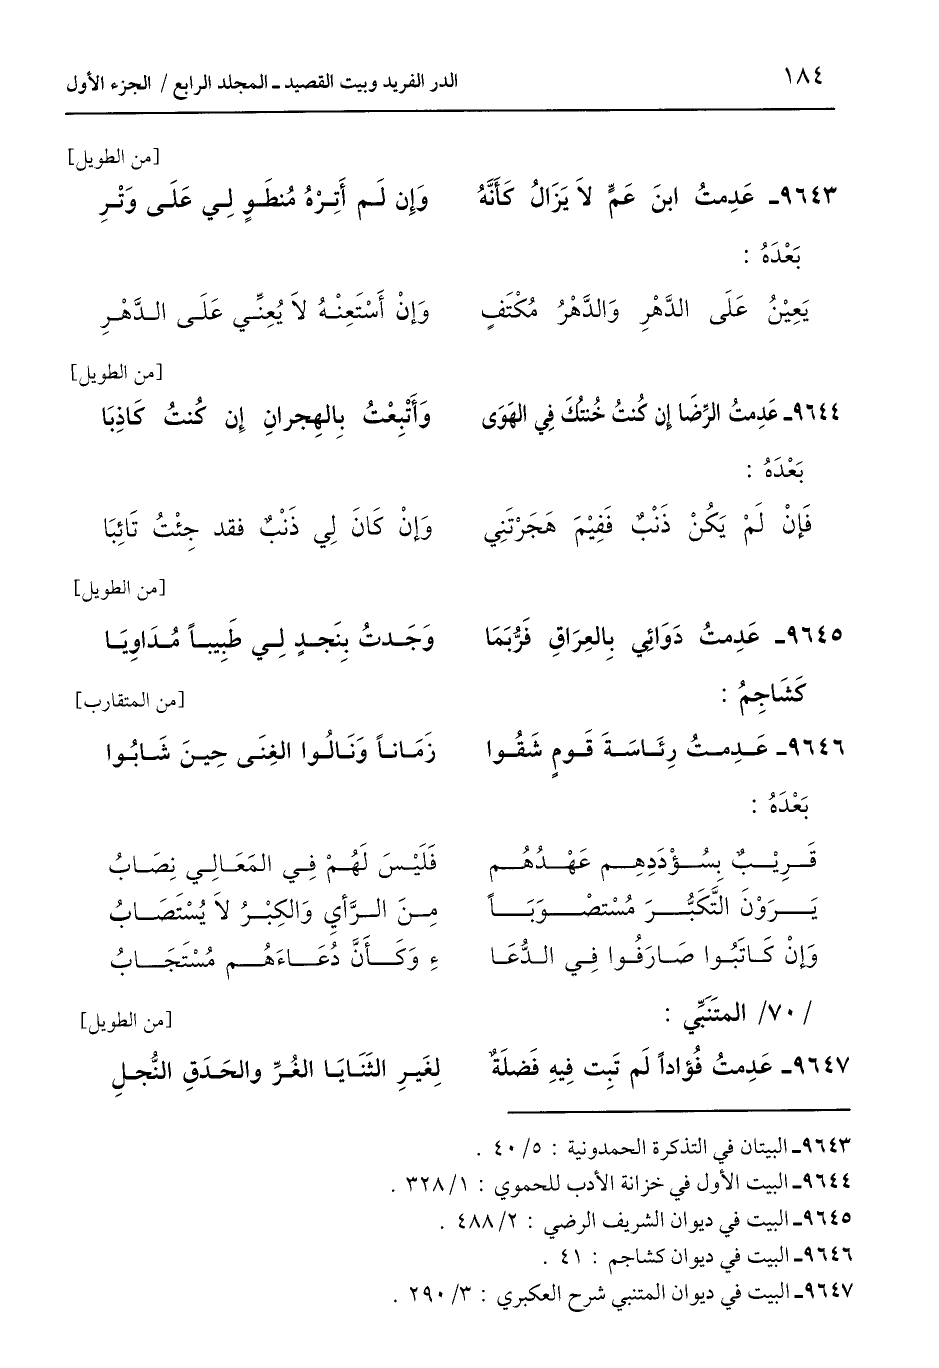 ١٨٤ الدر الفريد وبيت القصيد ـ المجلد الرابع / الجزء الأول
[من الطويل]
٩٦٤٣ـ عَدِمتُ ابنَ عَمٍّ لاَ يَزَالُ كَأَنَّهُ وَإِن لَم أَتِرْهُ مُنطَوٍ لِي عَلَى وَتْرِ
بَعْدَهُ :
يَعِيْنُ عَلَى الدَّهْرِ وَالدَّهْرُ مُكْتَفٍ وَإِنْ أَسْتَعِنْهُ لاَ يُعِنِّي عَلَى الدَّهْرِ
[من الطويل]
٩٦٤٤ـ عَدِمتُ الرِّضَا إِن كُنتُ خُنتُكَ فِي الهَوَى وَأَتْبِعْتُ بِالهِجرانِ إِن كُنتُ كَاذِبَا
بَعْدَهُ :
فَإِنْ لَمْ يَكُنْ ذَنْبٌ فَفِيْمَ هَجَرْتَنِي وَإِنْ كَانَ لِي ذَنْبٌ فقد جِئْتُ تَائِبَا
[من الطويل]
٩٦٤٥ـ عَدِمتُ دَوَائِي بِالعِرَاقِ فَرُبَّمَا وَجَدتُ بِنَجدٍ لِي طَبِيباً مُدَاوِيَا
كَشَاجِمُ : [من المتقارب]
٩٦٤٦ـ عَدِمتُ رِئَاسَةَ قَومٍ شَقُوا زَمَاناً وَنَالُوا الغِنَى حِينَ شَابُوا
بَعْدَهُ :
قَرِيْبٌ بِسُؤْدَدِهِم عَهْدُهُم فَلَيْسَ لَهُمْ فِي المَعَالِي نِصَابُ
يَرَوْنَ التَّكَبُّرَ مُسْتَصْوَبَاً مِنَ الرَّأيِ وَالكِبْرُ لاَ يُسْتَصَابُ
وَإِنْ كَاتَبُوا صَارَفُوا فِي الدُّعَا ءِ وَكَأَنَّ دُعَاءَهُم مُسْتَجَابُ
/٧٠/ المتَنَبِّي : [من الطويل]
٩٦٤٧ـ عَدِمتُ فُؤَاداً لَم تَبِت فِيهِ فَضلَةٌ لِغَيرِ الثَنَايَا الغُرِّ والحَدَقِ النُّجلِ
٩٦٤٣ـ البيتان في التذكرة الحمدونية : ٥/ ٤٠ .
٩٦٤٤ـ البيت الأول في خزانة الأدب للحموي : ١/ ٣٢٨ .
٩٦٤٥ـ البيت في ديوان الشريف الرضي : ٢/ ٤٨٨ .
٩٦٤٦ـ البيت في ديوان كشاجم : ٤١ .
٩٦٤٧ـ البيت في ديوان المتنبي شرح العكبري : ٣/ ٢٩٠ .